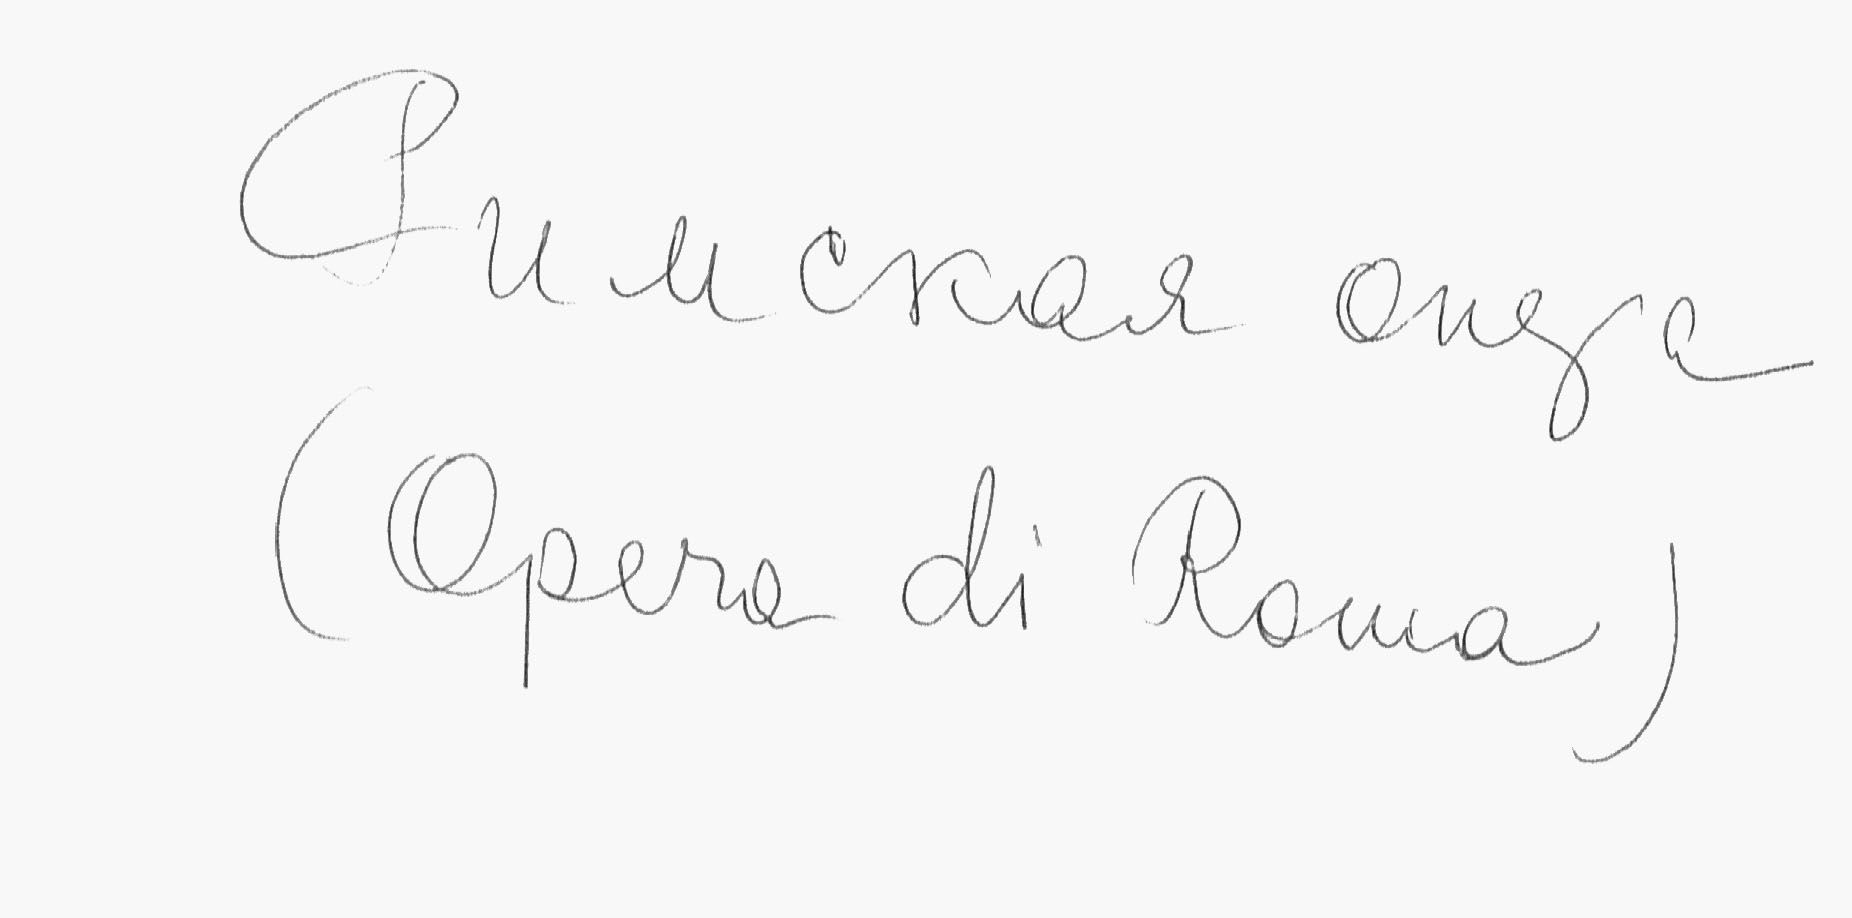 Римская опера
(Opera di Roma)